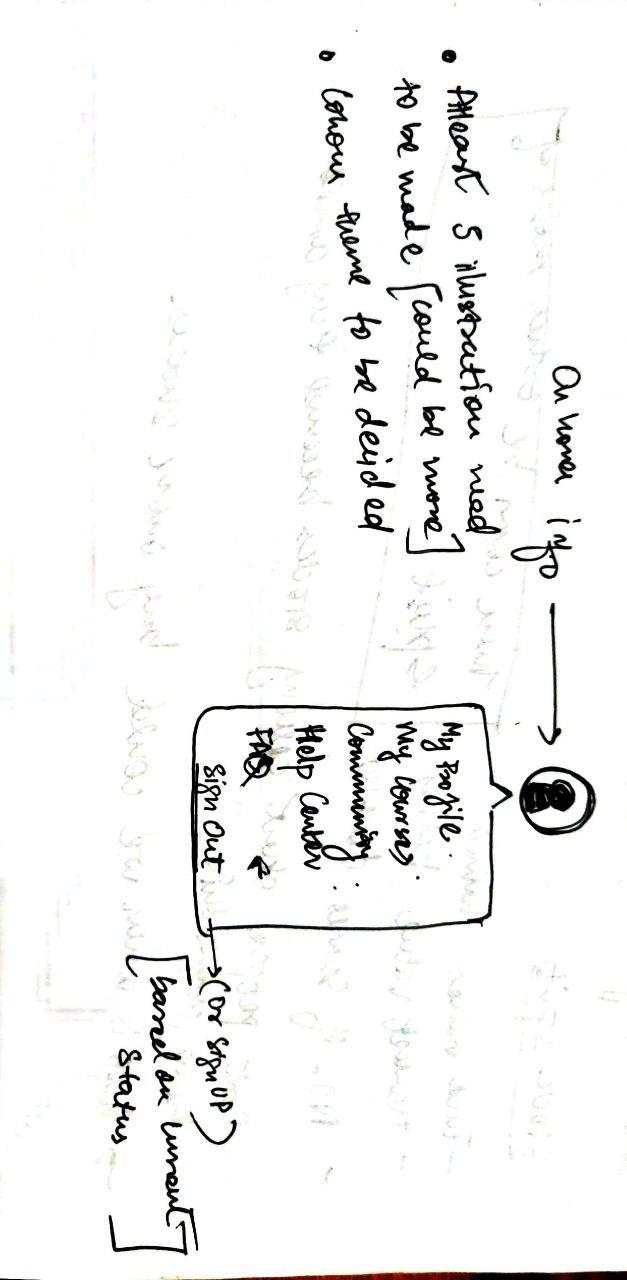 On hover info
• Atleast 5 illustration need
to be made [could be more]
• Colour theme to be decided
My Profile
My Courses
Community
Help Center
FAQ
Sign Out
(or Sign UP)
[based on current
Status]